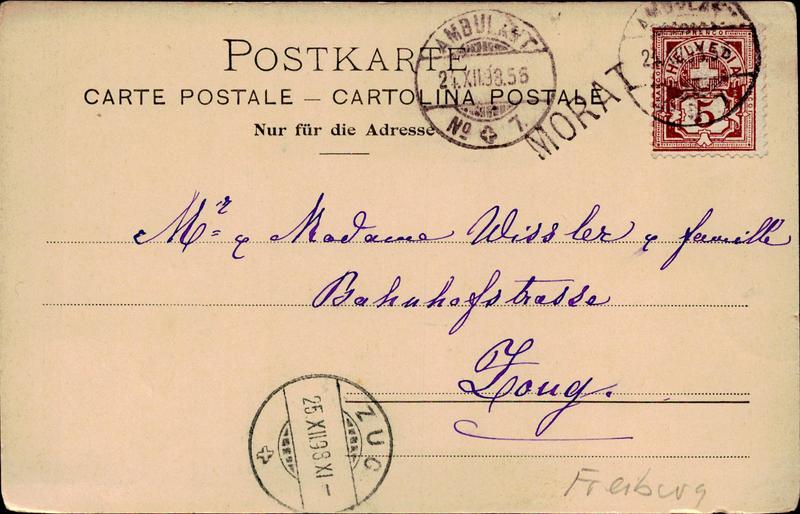 POSTKARTE
CARTE POSTALE – CARTOLINA POSTALE
Nur für die Adresse
AMBULANT
24.XII.98.56
No 7.
MORAT
AMBULANT
24
7
HELVETIA
5
Mr & Madame Wissler & famille
Bahnhofstrasse
Zoug.
ZUG
25.XII.98.XI–
Freiburg